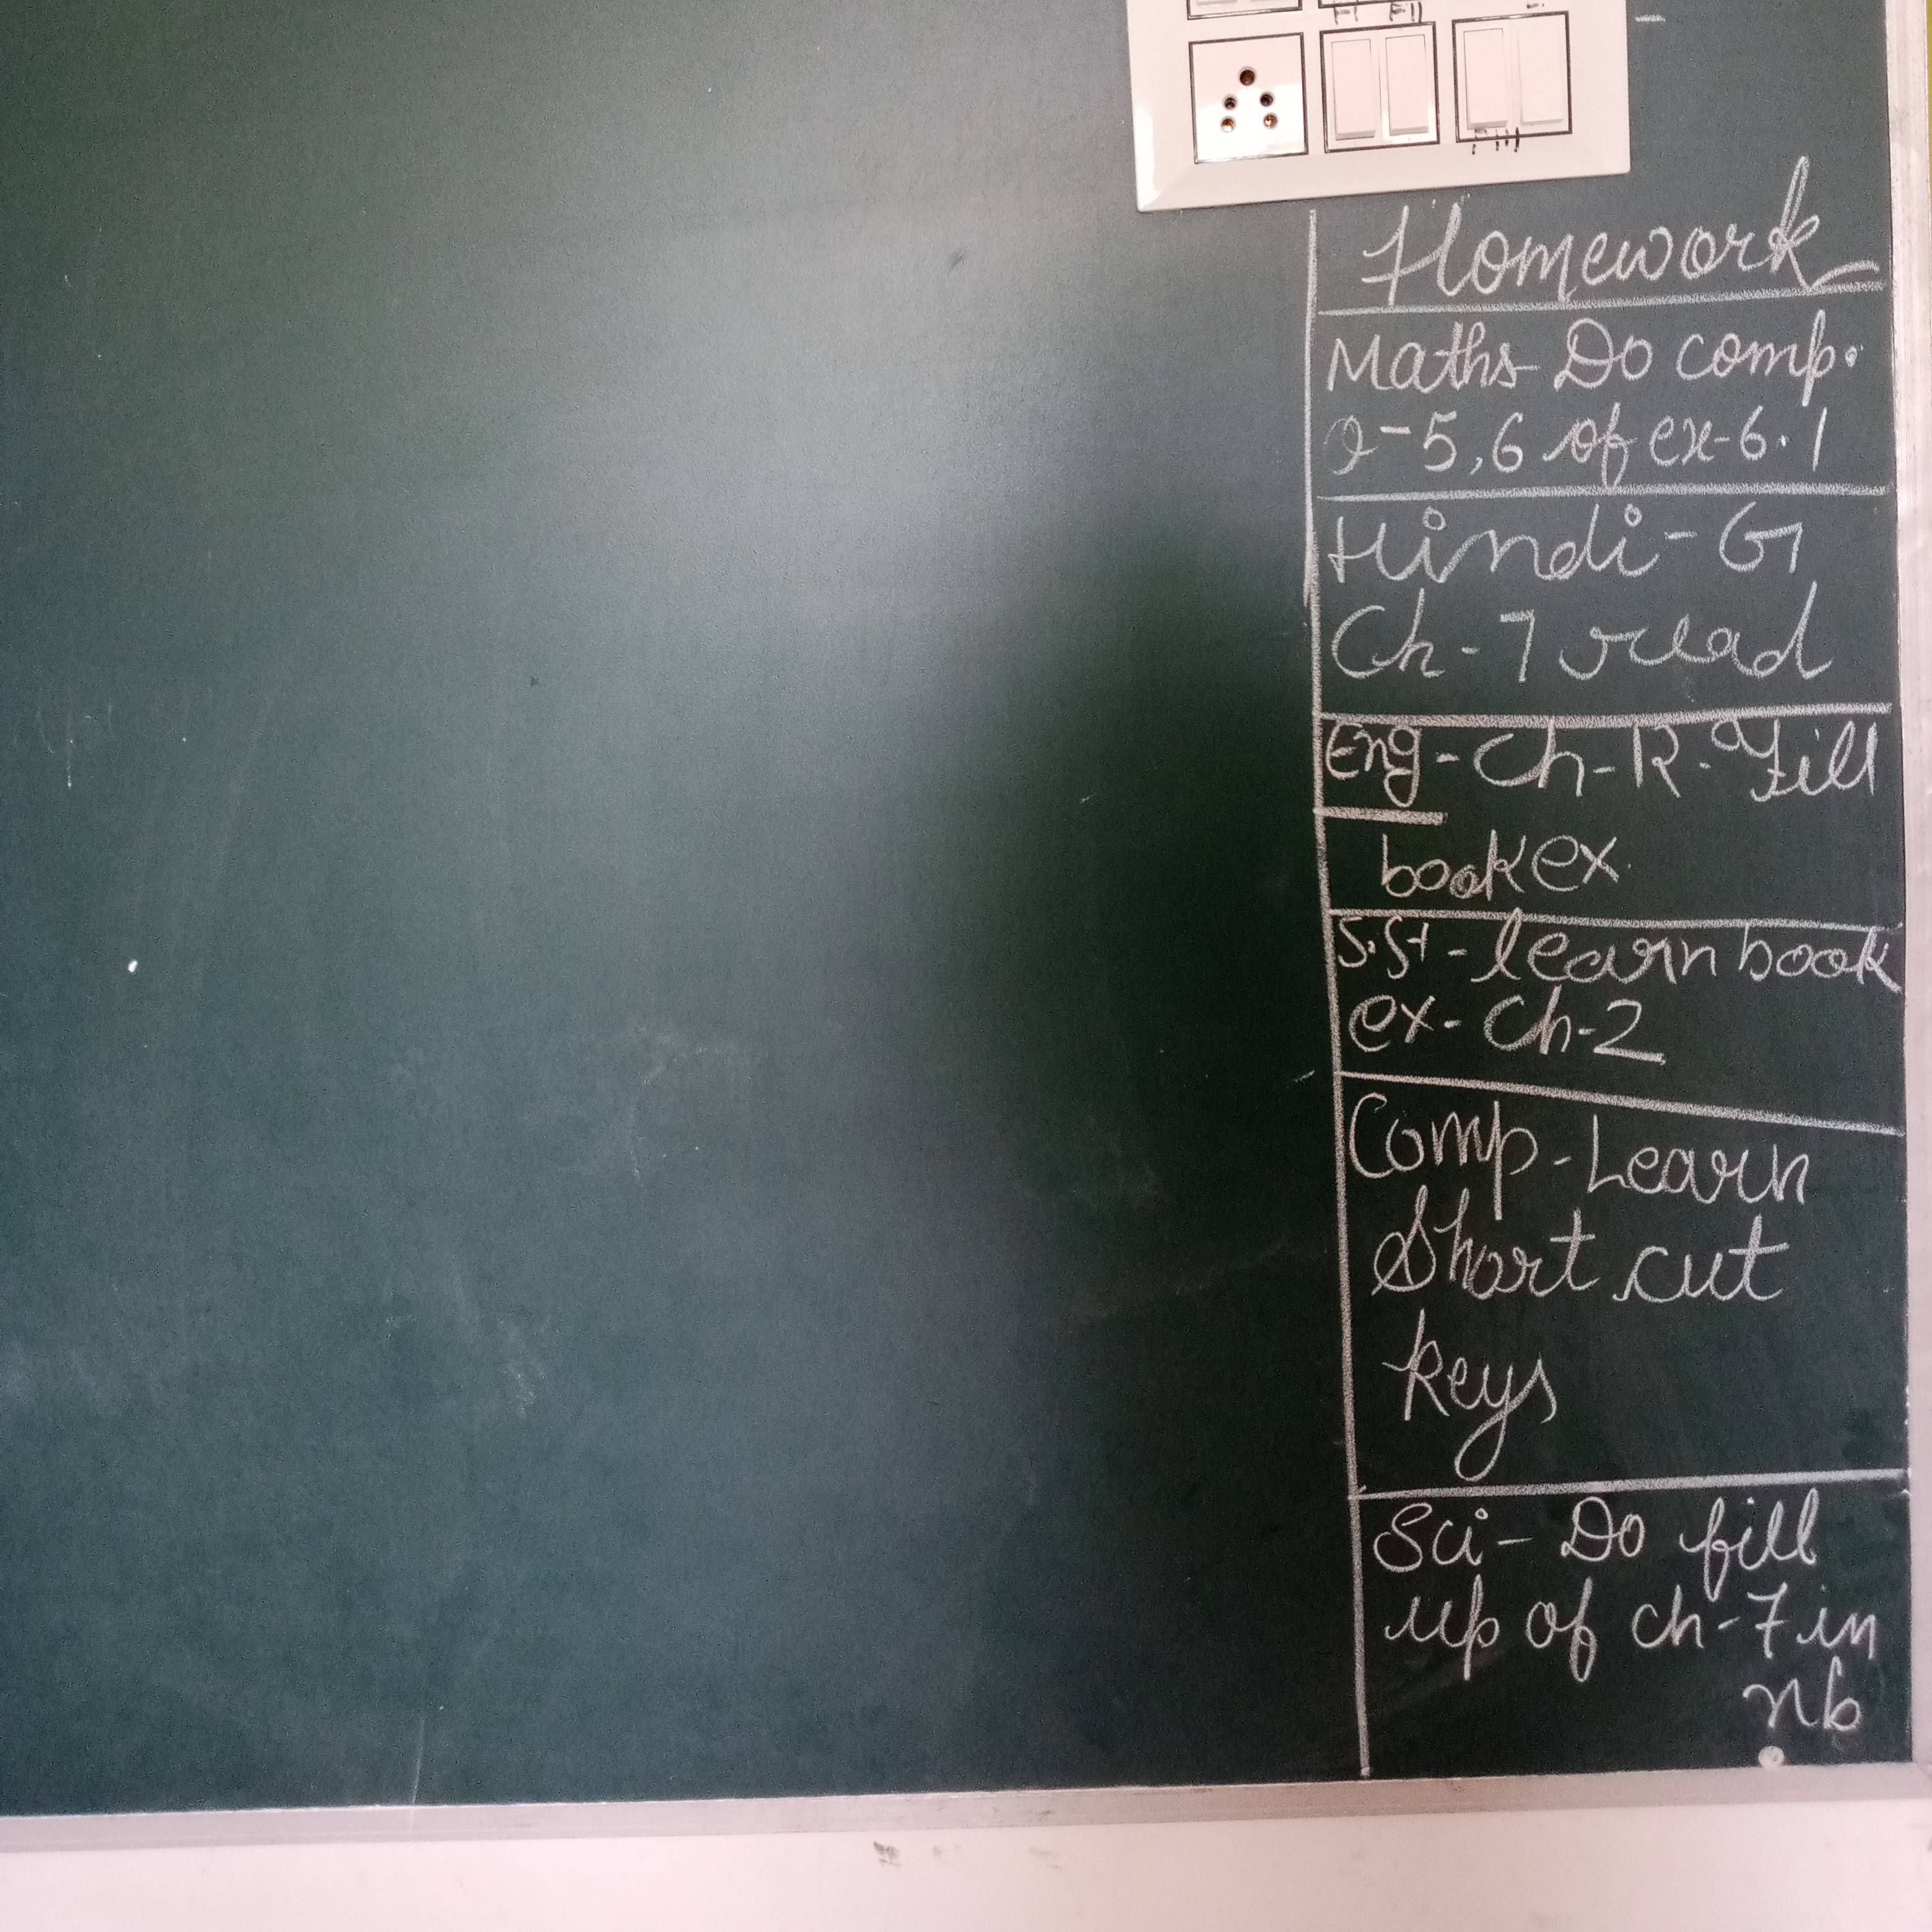 Homework
Maths- Do comp.
Q-5,6 of ex-6.1
Hindi- G
Ch-7 read
Eng- Ch-R. Fill
book ex.
S.St- learn book
ex- Ch-2
Comp-Learn
Short cut
keys
Sci- Do fill
up of ch-7 in
nb